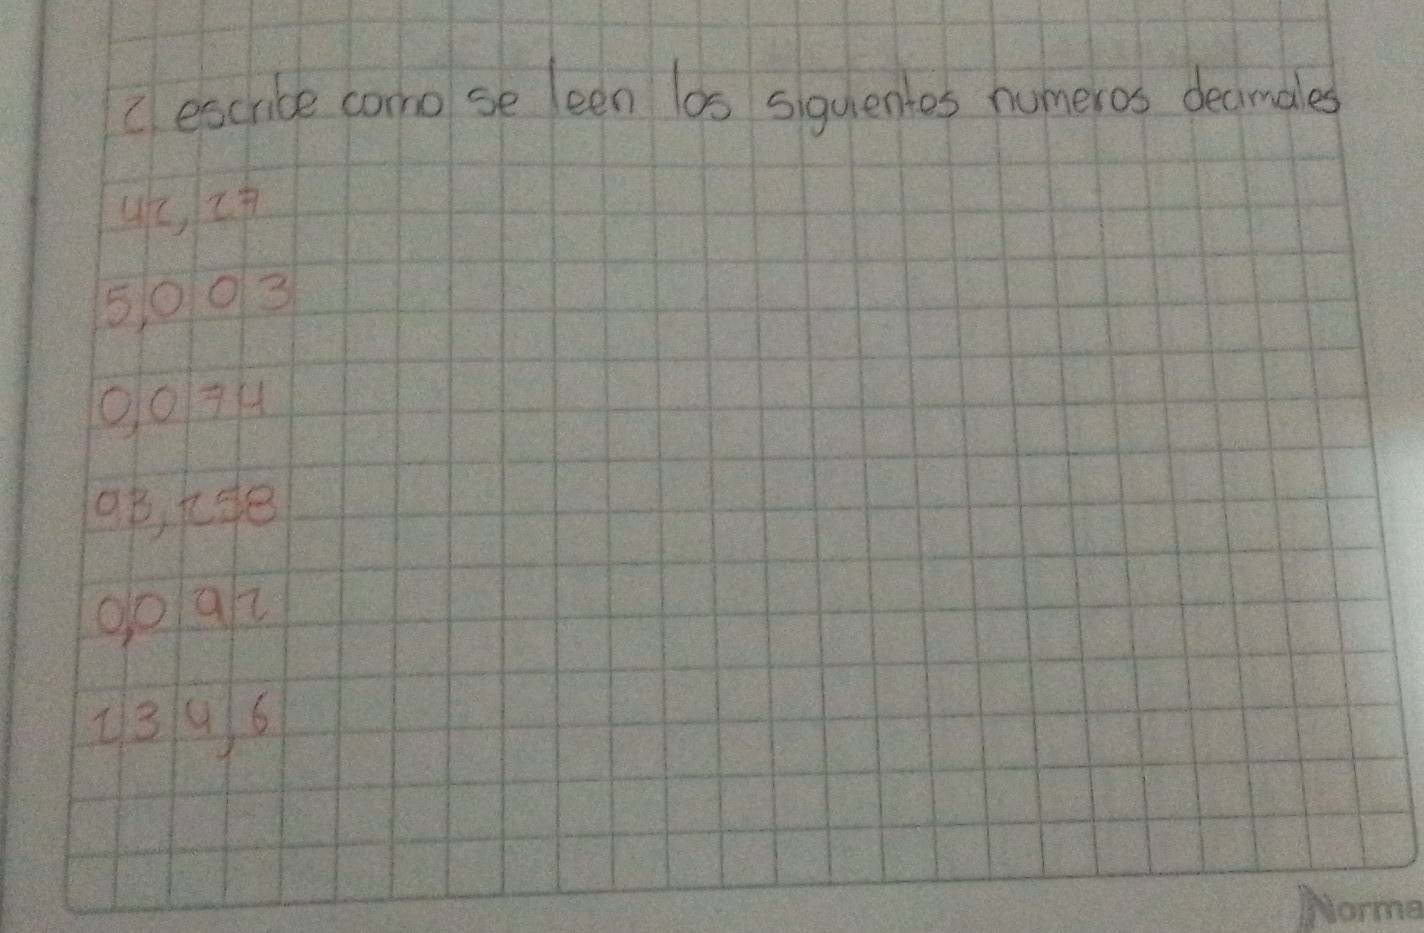 2 escribe como se leen los siguientes numeros decimales
42,27
5,003
0,074
93,258
0,092
134,6
Norma